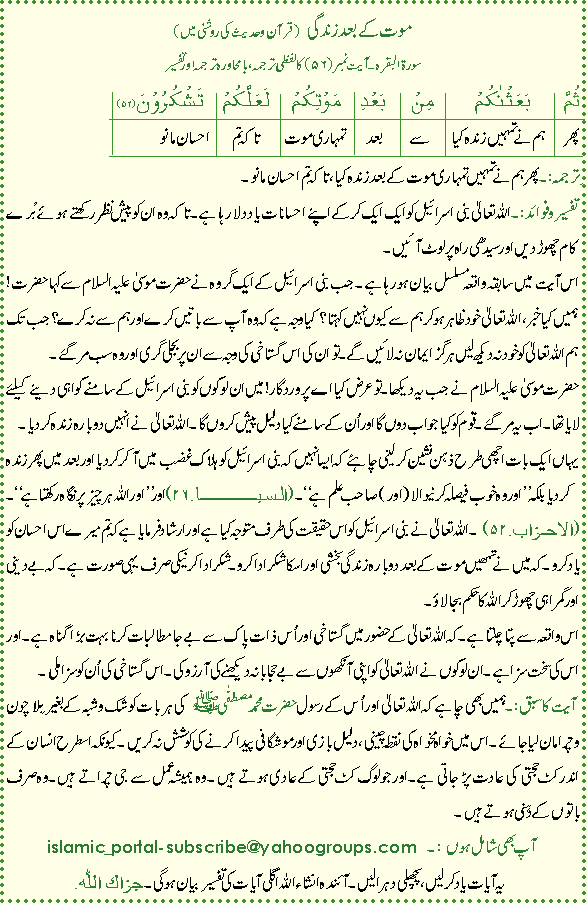 موت کے بعد زندگی (قرآن و حدیث کی روشنی میں)
سورۃ البقرہ۔ آیت نمبر (۵۶) کا لفظی ترجمہ، بامحاورہ ترجمہ اور تفسیر
ثُمَّ بَعَثْنٰكُمْ مِنْ بَعْدِ مَوْتِكُمْ لَعَلَّكُمْ تَشْكُرُوْنَ (۵۶)
پھر ہم نے تمہیں زندہ کیا سے بعد تمہاری موت تا کہ تم احسان مانو
ترجمہ:۔ پھر ہم نے تمہیں تمہاری موت کے بعد زندہ کیا، تا کہ تم احسان مانو۔
تفسیر و فوائد:۔ اللہ تعالیٰ بنی اسرائیل کو ایک ایک کر کے اپنے احسانات یاد دلا رہا ہے۔ تا کہ وہ ان کو پیش نظر رکھتے ہوئے بُرے
کام چھوڑ دیں اور سیدھی راہ پر لوٹ آئیں۔
اس آیت میں سابقہ واقعہ مسلسل بیان ہو رہا ہے۔ جب بنی اسرائیل کے ایک گروہ نے حضرت موسیٰ علیہ السلام سے کہا حضرت!
ہمیں کیا خبر، اللہ تعالیٰ خود ظاہر ہو کر ہم سے کیوں نہیں کہتا؟ کیا وجہ ہے کہ وہ آپ سے باتیں کرے اور ہم سے نہ کرے؟ جب تک
ہم اللہ تعالیٰ کو خود نہ دیکھ لیں ہرگز ایمان نہ لائیں گے۔ تو ان کی اس گستاخی کی وجہ سے ان پر بجلی گری اور وہ سب مر گئے۔
حضرت موسیٰ علیہ السلام نے جب یہ دیکھا۔ تو عرض کیا اے پروردگار! میں ان لوگوں کو بنی اسرائیل کے سامنے گواہی دینے کیلئے
لایا تھا۔ اب یہ مر گئے۔ قوم کو کیا جواب دوں گا اور اُن کے سامنے کیا دلیل پیش کروں گا۔ اللہ تعالیٰ نے انہیں دوبارہ زندہ کر دیا۔
یہاں ایک بات اچھی طرح ذہن نشین کر لینی چاہئے کہ ایسا نہیں کہ بنی اسرائیل کو ہلاک غضب میں آ کر کر دیا اور بعد میں پھر زندہ
کر دیا بلکہ "اور وہ خوب فیصلہ کرنیوالا (اور) صاحب علم ہے"۔ (السبا۔۲۶) اور "اور اللہ ہر چیز پر نگاہ رکھتا ہے"۔
(الاحزاب۔۵۲)۔ اللہ تعالیٰ نے بنی اسرائیل کو اس حقیقت کی طرف متوجہ کیا ہے اور ارشاد فرمایا ہے کہ تم میرے اس احسان کو
یاد کرو۔ کہ میں نے تمھیں موت کے بعد دوبارہ زندگی بخشی اور اسکا شکر ادا کرو۔ شکر ادا کرنیکی صرف یہی صورت ہے۔ کہ بے دینی
اور گمراہی چھوڑ کر اللہ کا حکم بجا لاؤ۔
اس واقعہ سے پتا چلتا ہے۔ کہ اللہ تعالیٰ کے حضور میں گستاخی اور اُس ذات پاک سے بے جا مطالبات کرنا بہت بڑا گناہ ہے۔ اور
اس کی سخت سزا ہے۔ ان لوگوں نے اللہ تعالیٰ کو اپنی آنکھوں سے بے حجابا نہ دیکھنے کی آرزو کی۔ اس گستاخی کی اُن کو سزا ملی۔
آیت کا سبق:۔ ہمیں بھی چاہے کہ اللہ تعالیٰ اور اُس کے رسول حضرت محمد مصطفٰی ﷺ کی ہر بات کو شک و شبہ کے بغیر بلا چون
و چرا مان لیا جائے۔ اس میں خواہ مخواہ کی نقطہ چینی، دلیل بازی اور موشگافی پیدا کرنے کی کوشش نہ کریں۔ کیونکہ اسطرح انسان کے
اندر کٹ حجتی کی عادت پڑ جاتی ہے۔ اور جو لوگ کٹ حجتی کے عادی ہوتے ہیں۔ وہ ہمیشہ عمل سے جی چراتے ہیں۔ وہ صرف
باتوں کے دھنی ہوتے ہیں۔
آپ بھی شامل ہوں:۔ islamic_portal-subscribe@yahoogroups.com
یہ آیات یاد کر لیں، پچھلی دہرا لیں۔ آئندہ انشاء اللہ اگلی آیات کی تفسیر بیان ہو گی۔ جزاك الله.